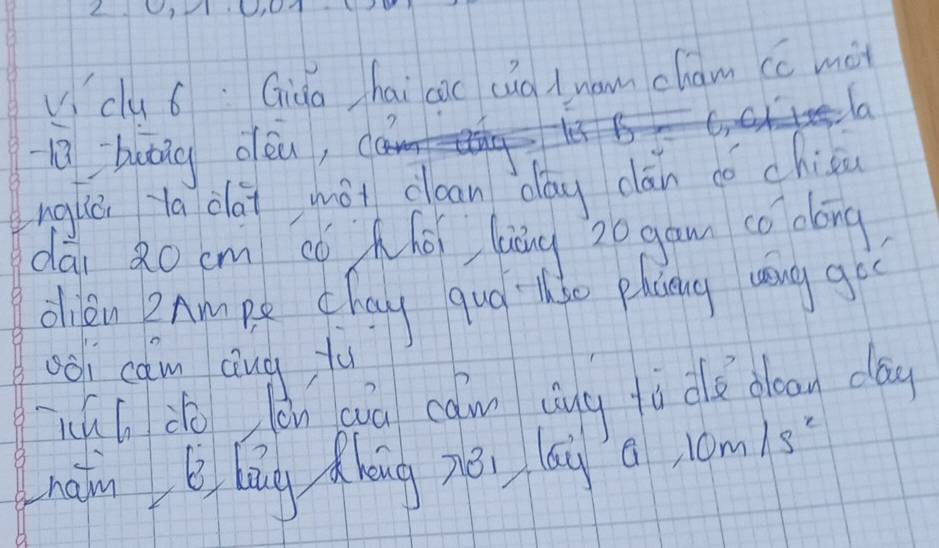 Ví dụ 6 : Giữa hai cực của 1 nam châm có một
từ trường đều, cảm ứng từ B = 0, là
người ta đặt một đoạn dây dẫn có chiều
dài 20 cm có khối lượng 20 gam có dòng
điện 2 Ampe chạy qua theo phương vuông góc
với cảm ứng từ
Tính độ lớn của cảm ứng từ để đoạn dây
nằm lơ lửng không rơi, lấy g 10m/s²